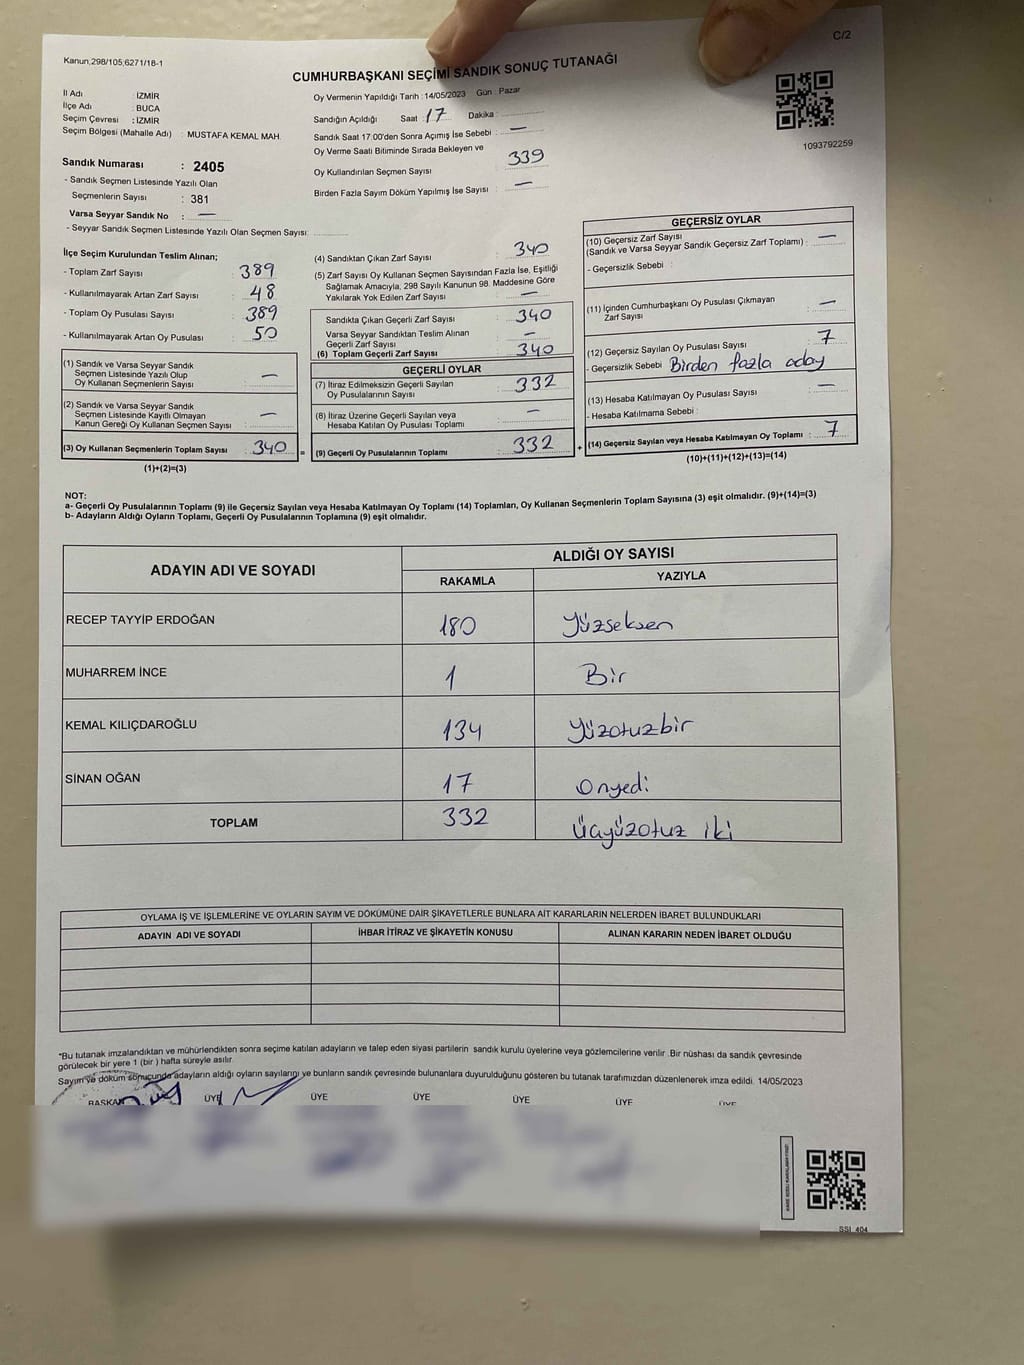 C/2
Kanun,298/105;6271/18-1
CUMHURBAŞKANI SEÇİMİ SANDIK SONUÇ TUTANAĞI
İl Adı : İZMİR
İlçe Adı : BUCA
Seçim Çevresi : İZMİR
Seçim Bölgesi (Mahalle Adı) : MUSTAFA KEMAL MAH.
Sandık Numarası : 2405
- Sandık Seçmen Listesinde Yazılı Olan
Seçmenlerin Sayısı : 381
Varsa Seyyar Sandık No : —
- Seyyar Sandık Seçmen Listesinde Yazılı Olan Seçmen Sayısı:
Oy Vermenin Yapıldığı Tarih : 14/05/2023 Gün : Pazar
Sandığın Açıldığı Saat : 17 Dakika :
Sandık Saat 17:00'den Sonra Açımış İse Sebebi : —
Oy Verme Saati Bitiminde Sırada Bekleyen ve
Oy Kullandırılan Seçmen Sayısı : 339
Birden Fazla Sayım Döküm Yapılmış İse Sayısı : —
1093792259
İlçe Seçim Kurulundan Teslim Alınan;
- Toplam Zarf Sayısı : 389
- Kullanılmayarak Artan Zarf Sayısı : 48
- Toplam Oy Pusulası Sayısı : 389
- Kullanılmayarak Artan Oy Pusulası : 50
(1) Sandık ve Varsa Seyyar Sandık
Seçmen Listesinde Yazılı Olup
Oy Kullanan Seçmenlerin Sayısı : —
(2) Sandık ve Varsa Seyyar Sandık
Seçmen Listesinde Kayıtlı Olmayan
Kanun Gereği Oy Kullanan Seçmen Sayısı : —
(3) Oy Kullanan Seçmenlerin Toplam Sayısı : 340 =
(1)+(2)=(3)
(4) Sandıktan Çıkan Zarf Sayısı : 340
(5) Zarf Sayısı Oy Kullanan Seçmen Sayısından Fazla İse, Eşitliği
Sağlamak Amacıyla, 298 Sayılı Kanunun 98. Maddesine Göre
Yakılarak Yok Edilen Zarf Sayısı : —
Sandıkta Çıkan Geçerli Zarf Sayısı : 340
Varsa Seyyar Sandıktan Teslim Alınan
Geçerli Zarf Sayısı : —
(6) Toplam Geçerli Zarf Sayısı : 340
GEÇERLİ OYLAR
(7) İtiraz Edilmeksizin Geçerli Sayılan
Oy Pusulalarının Sayısı : 332
(8) İtiraz Üzerine Geçerli Sayılan veya
Hesaba Katılan Oy Pusulası Toplamı : —
(9) Geçerli Oy Pusulalarının Toplamı : 332 +
GEÇERSİZ OYLAR
(10) Geçersiz Zarf Sayısı
(Sandık ve Varsa Seyyar Sandık Geçersiz Zarf Toplamı) : —
- Geçersizlik Sebebi :
(11) İçinden Cumhurbaşkanı Oy Pusulası Çıkmayan
Zarf Sayısı : —
(12) Geçersiz Sayılan Oy Pusulası Sayısı : 7
- Geçersizlik Sebebi : Birden fazla aday
(13) Hesaba Katılmayan Oy Pusulası Sayısı : —
- Hesaba Katılmama Sebebi :
(14) Geçersiz Sayılan veya Hesaba Katılmayan Oy Toplamı : 7
(10)+(11)+(12)+(13)=(14)
NOT:
a- Geçerli Oy Pusulalarının Toplamı (9) ile Geçersiz Sayılan veya Hesaba Katılmayan Oy Toplamı (14) Toplamları, Oy Kullanan Seçmenlerin Toplam Sayısına (3) eşit olmalıdır. (9)+(14)=(3)
b- Adayların Aldığı Oyların Toplamı, Geçerli Oy Pusulalarının Toplamına (9) eşit olmalıdır.
ADAYIN ADI VE SOYADI ALDIĞI OY SAYISI
RAKAMLA YAZIYLA
RECEP TAYYİP ERDOĞAN 180 Yüzseksen
MUHARREM İNCE 1 Bir
KEMAL KILIÇDAROĞLU 134 Yüzotuzbir
SİNAN OĞAN 17 Onyedi
TOPLAM 332 Üçyüzotuz iki
OYLAMA İŞ VE İŞLEMLERİNE VE OYLARIN SAYIM VE DÖKÜMÜNE DAİR ŞİKAYETLERLE BUNLARA AİT KARARLARIN NELERDEN İBARET BULUNDUKLARI
ADAYIN ADI VE SOYADI İHBAR İTİRAZ VE ŞİKAYETİN KONUSU ALINAN KARARIN NEDEN İBARET OLDUĞU
*Bu tutanak imzalandıktan ve mühürlendikten sonra seçime katılan adayların ve talep eden siyasi partilerin sandık kurulu üyelerine veya gözlemcilerine verilir .Bir nüshası da sandık çevresinde
görülecek bir yere 1 (bir ) hafta süreyle asılır.
Sayım ve döküm sonucunda adayların aldığı oyların sayılarıyı ve bunların sandık çevresinde bulunanlara duyurulduğunu gösteren bu tutanak tarafımızdan düzenlenerek imza edildi. 14/05/2023
BAŞKAN ÜYE ÜYE ÜYE ÜYE ÜYE ÜYE
SSI_404